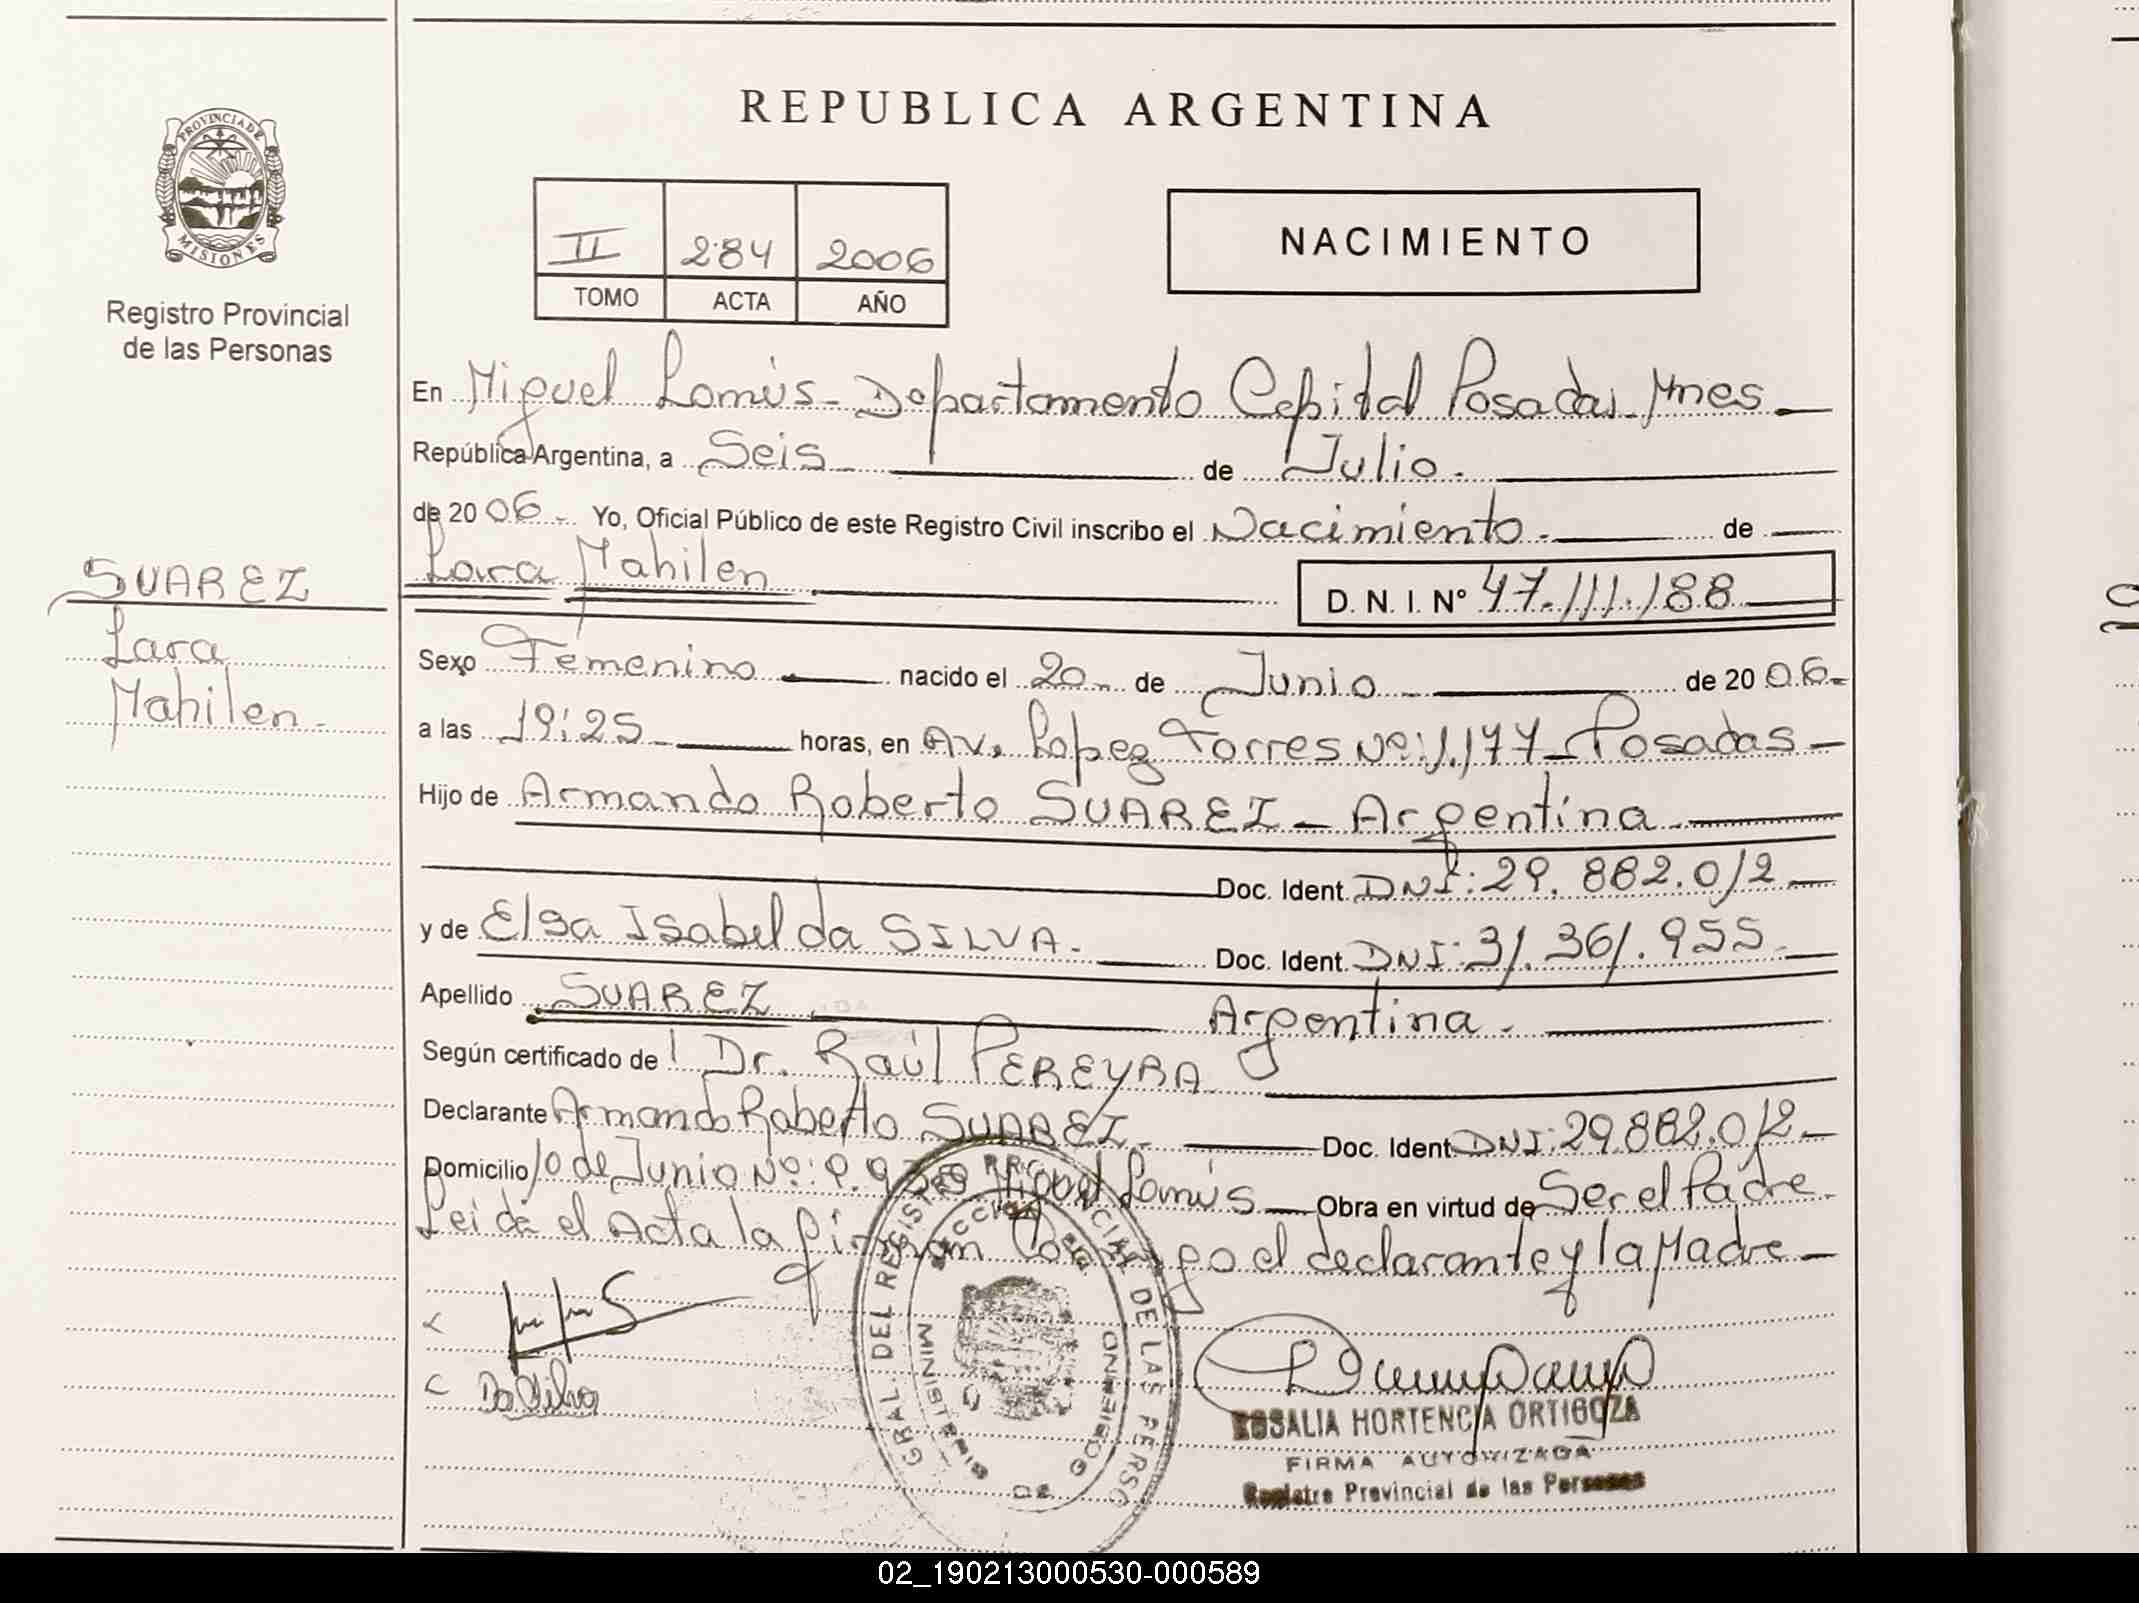 REPUBLICA ARGENTINA
PROVINCIA DE
MISIONES
Registro Provincial
de las Personas
II 284 2006
TOMO ACTA AÑO
NACIMIENTO
En Miguel Lanús - Departamento Capital Posadas Mnes
República Argentina, a Seis de Julio.
de 2006. Yo, Oficial Público de este Registro Civil inscribo el Nacimiento de
Lara Mahilen D. N. I. Nº 47.111.188
SUAREZ
Lara
Mahilen.
Sexo Femenino nacido el 20 de Junio de 2006.
a las 19:25 horas, en Av. Lopez Torres Nº: 1.177 - Posadas
Hijo de Armando Roberto SUAREZ - Argentina
Doc. Ident. DNI: 29.882.012
y de Elsa Isabel da SILVA. Doc. Ident. DNI: 31.361.955
Apellido SUAREZ Argentina.
Según certificado de Dr. Raúl PEREYRA
Declarante Armando Roberto SUAREZ. Doc. Ident. DNI: 29.882.012
Domicilio 10 de Junio Nº: Miguel Lanús Obra en virtud de Ser el Padre
Leída el Acta la firman Conmigo el declarante y la Madre
Da Silva
GRAL. DEL REGISTRO PROVINCIAL DE LAS PERSO
MINISTERIO DE GOBIERNO
ROSALIA HORTENCIA ORTIGOZA
FIRMA AUTORIZADA
Registro Provincial de las Personas
02_190213000530-000589